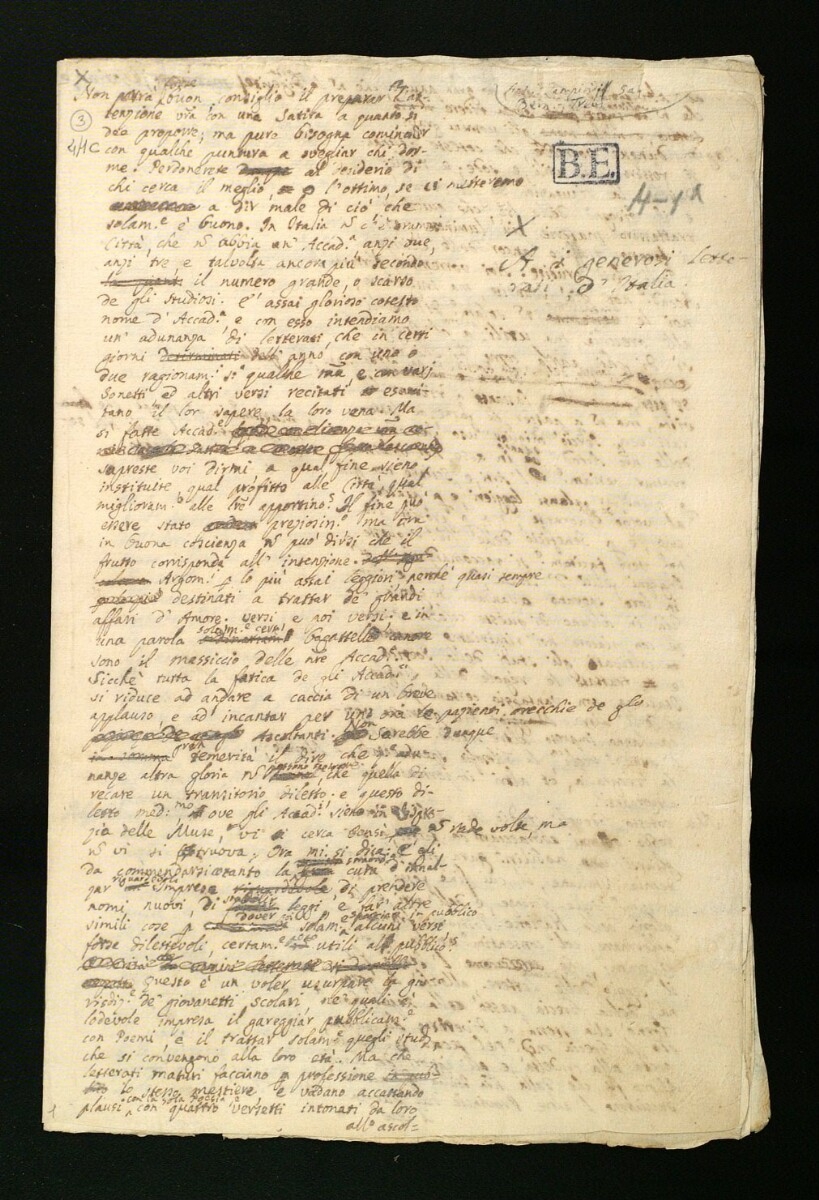 X
Non parrà buon consiglio il preparar l'at-
3
tenzione vra con una Satira a quanto si
4/1C
dee proporre; ma pure bisogna cominciar
con qualche puntura a svegliar chi dor-
me. Perdonerete al desiderio di
chi cerca il meglio, e l'ottimo, se ci metteremo
a dir male di ciò, che
solam.e è buono. In Italia nō c'è oramai
Città, che nō abbia un' Accad.a anzi due,
anzi tre, e talvolta ancora più secondo
il numero grande, o scarso
de gli Studiosi. E' assai glorioso cotesto
nome d' Accad.a e con esso intendiamo
un' adunanza di letterati, che in certi
giorni determinati dell' anno, con uno o
due ragionam.i so' qualche mã, e con varj
Sonetti ed altri versi recitati esami-
tano il lor sapere, la loro vena. Ma
sì fatte Accad.e
sapreste voi dirmi a qual fine sieno
instituite, qual profitto alle Città, qual
miglioram.o alle lre apportino? Il fine può
essere stato preziosiss.o ma certo
in buona coscienza nō può dirsi che il
frutto corrisponda all' intenzione.
Argom.i p lo più assai leggieri, perchè quasi sempre
destinati a trattar de' grandi
affari d' Amore. versi, e poi versi; e in
solam.e certe
una parola bagattelle canore
sono il massiccio delle nre Accad.e
Sicchè tutta la fatica de gli Accad.i
si riduce ad andare a caccia di un breve
applauso, e ad incantar per un' ora le pazienti orecchie de gli
Ascoltanti. Non sarebbe dunque
gran temerità il dire, che tali adu-
nanze altra gloria nō che quella di
recare un transitorio diletto. e questo di-
letto med.mo ove gli Accad.i sieno in disgra-
zia delle Muse, vi si cerca bensì nō rade volte, ma
nō vi si truova. Ora mi si dica: è egli
da commendarsi cotanto la cura d'innal-
zar Imprese, di prendere
nomi nuovi, di stabilir leggi, e far altre
simili cose p dover poi solam.e spacciar in pubblico alcuni versi
forse dilettevoli, certam.e poco utili al pubblico?
Questo è un voler usurpare la giu-
risdiz.e de' giovanetti scolari ne' quali è
lodevole impresa il gareggiar pubblicam.e
con Poemi, e il trattar solam.e quegli studj
che si convengono alla loro età. Ma che
letterati maturi facciano professione
lo stesso mestiere e vadano accattando
plausi con la sola Poesia e con quattro versetti intonati da loro
all' ascol=
B.E.
4-1a
X
A i generosi Lette-
rati d' Italia.